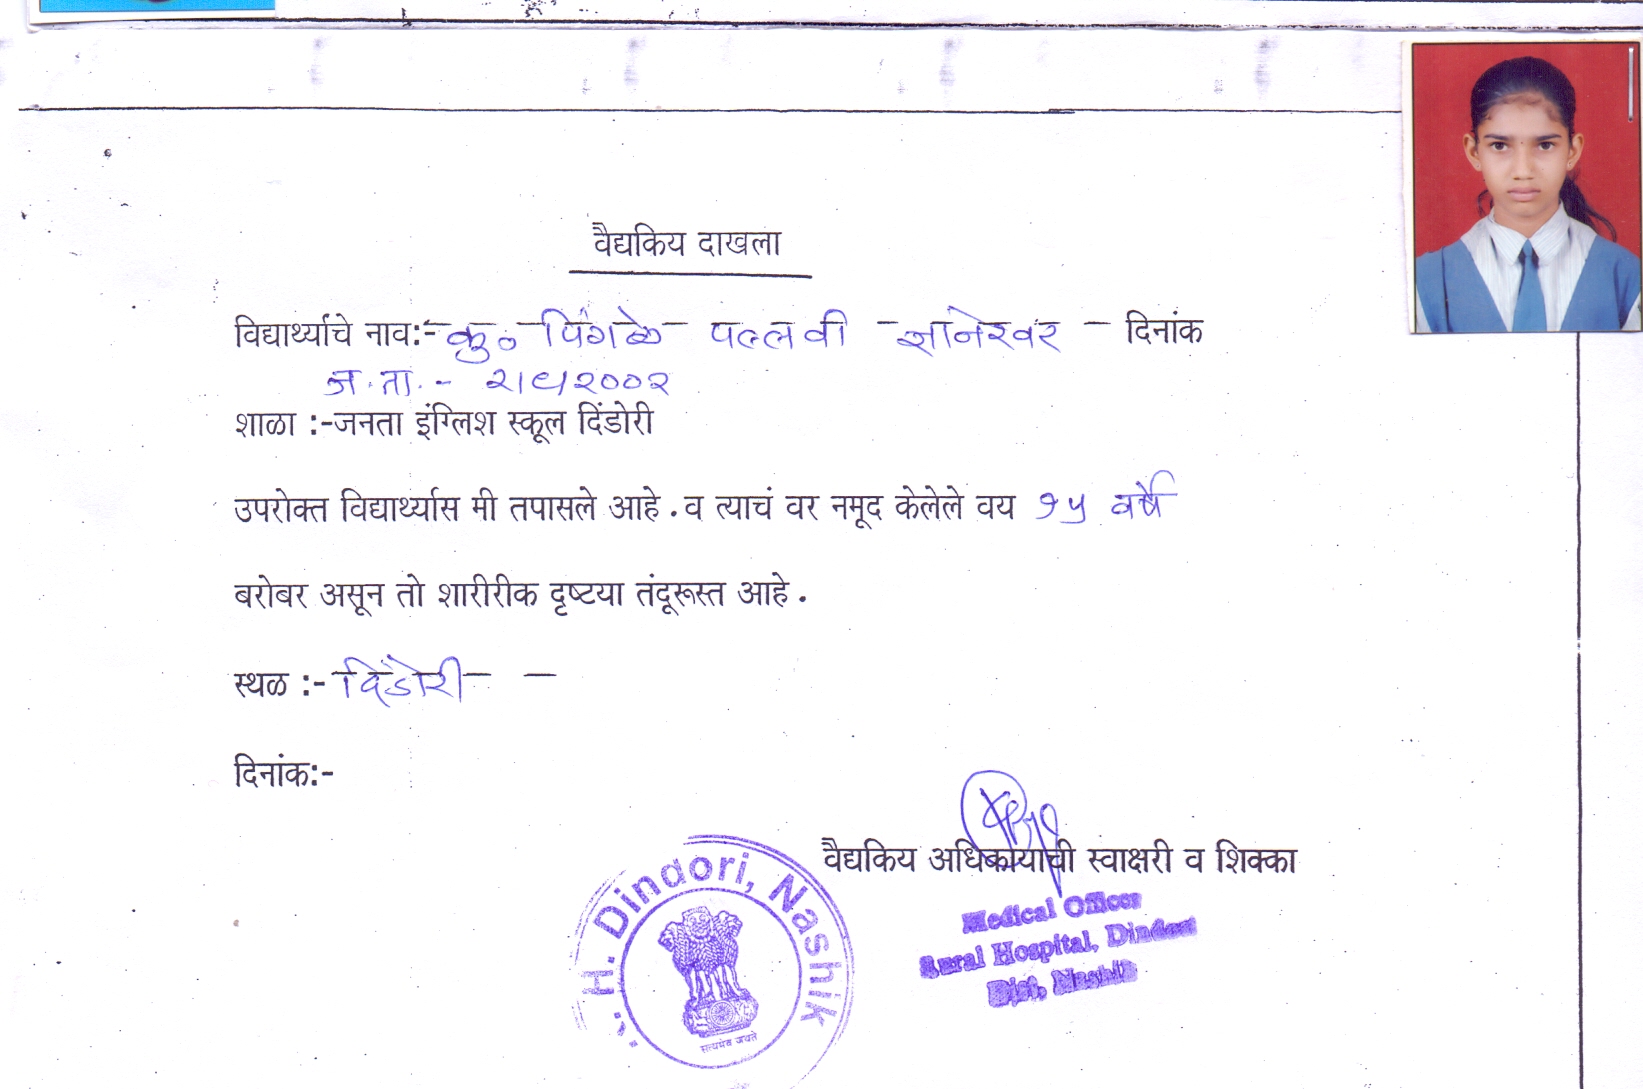 वैद्यकिय दाखला
विद्यार्थ्याचे नाव:- कु० पिंगळे पल्लवी ज्ञानेश्वर - दिनांक
ज.ता. - २/९/२००२
शाळा :-जनता इंग्लिश स्कूल दिंडोरी
उपरोक्त विद्यार्थ्यास मी तपासले आहे.व त्याचं वर नमूद केलेले वय १५ वर्षे
बरोबर असून तो शारीरीक दृष्टया तंदूरूस्त आहे.
स्थळ :- दिंडोरी -
दिनांक:-
वैद्यकिय अधिकार्याची स्वाक्षरी व शिक्का
R.H. Dindori, Nashik
सत्यमेव जयते
Medical Officer
Rural Hospital, Dindori
Dist. Nashik